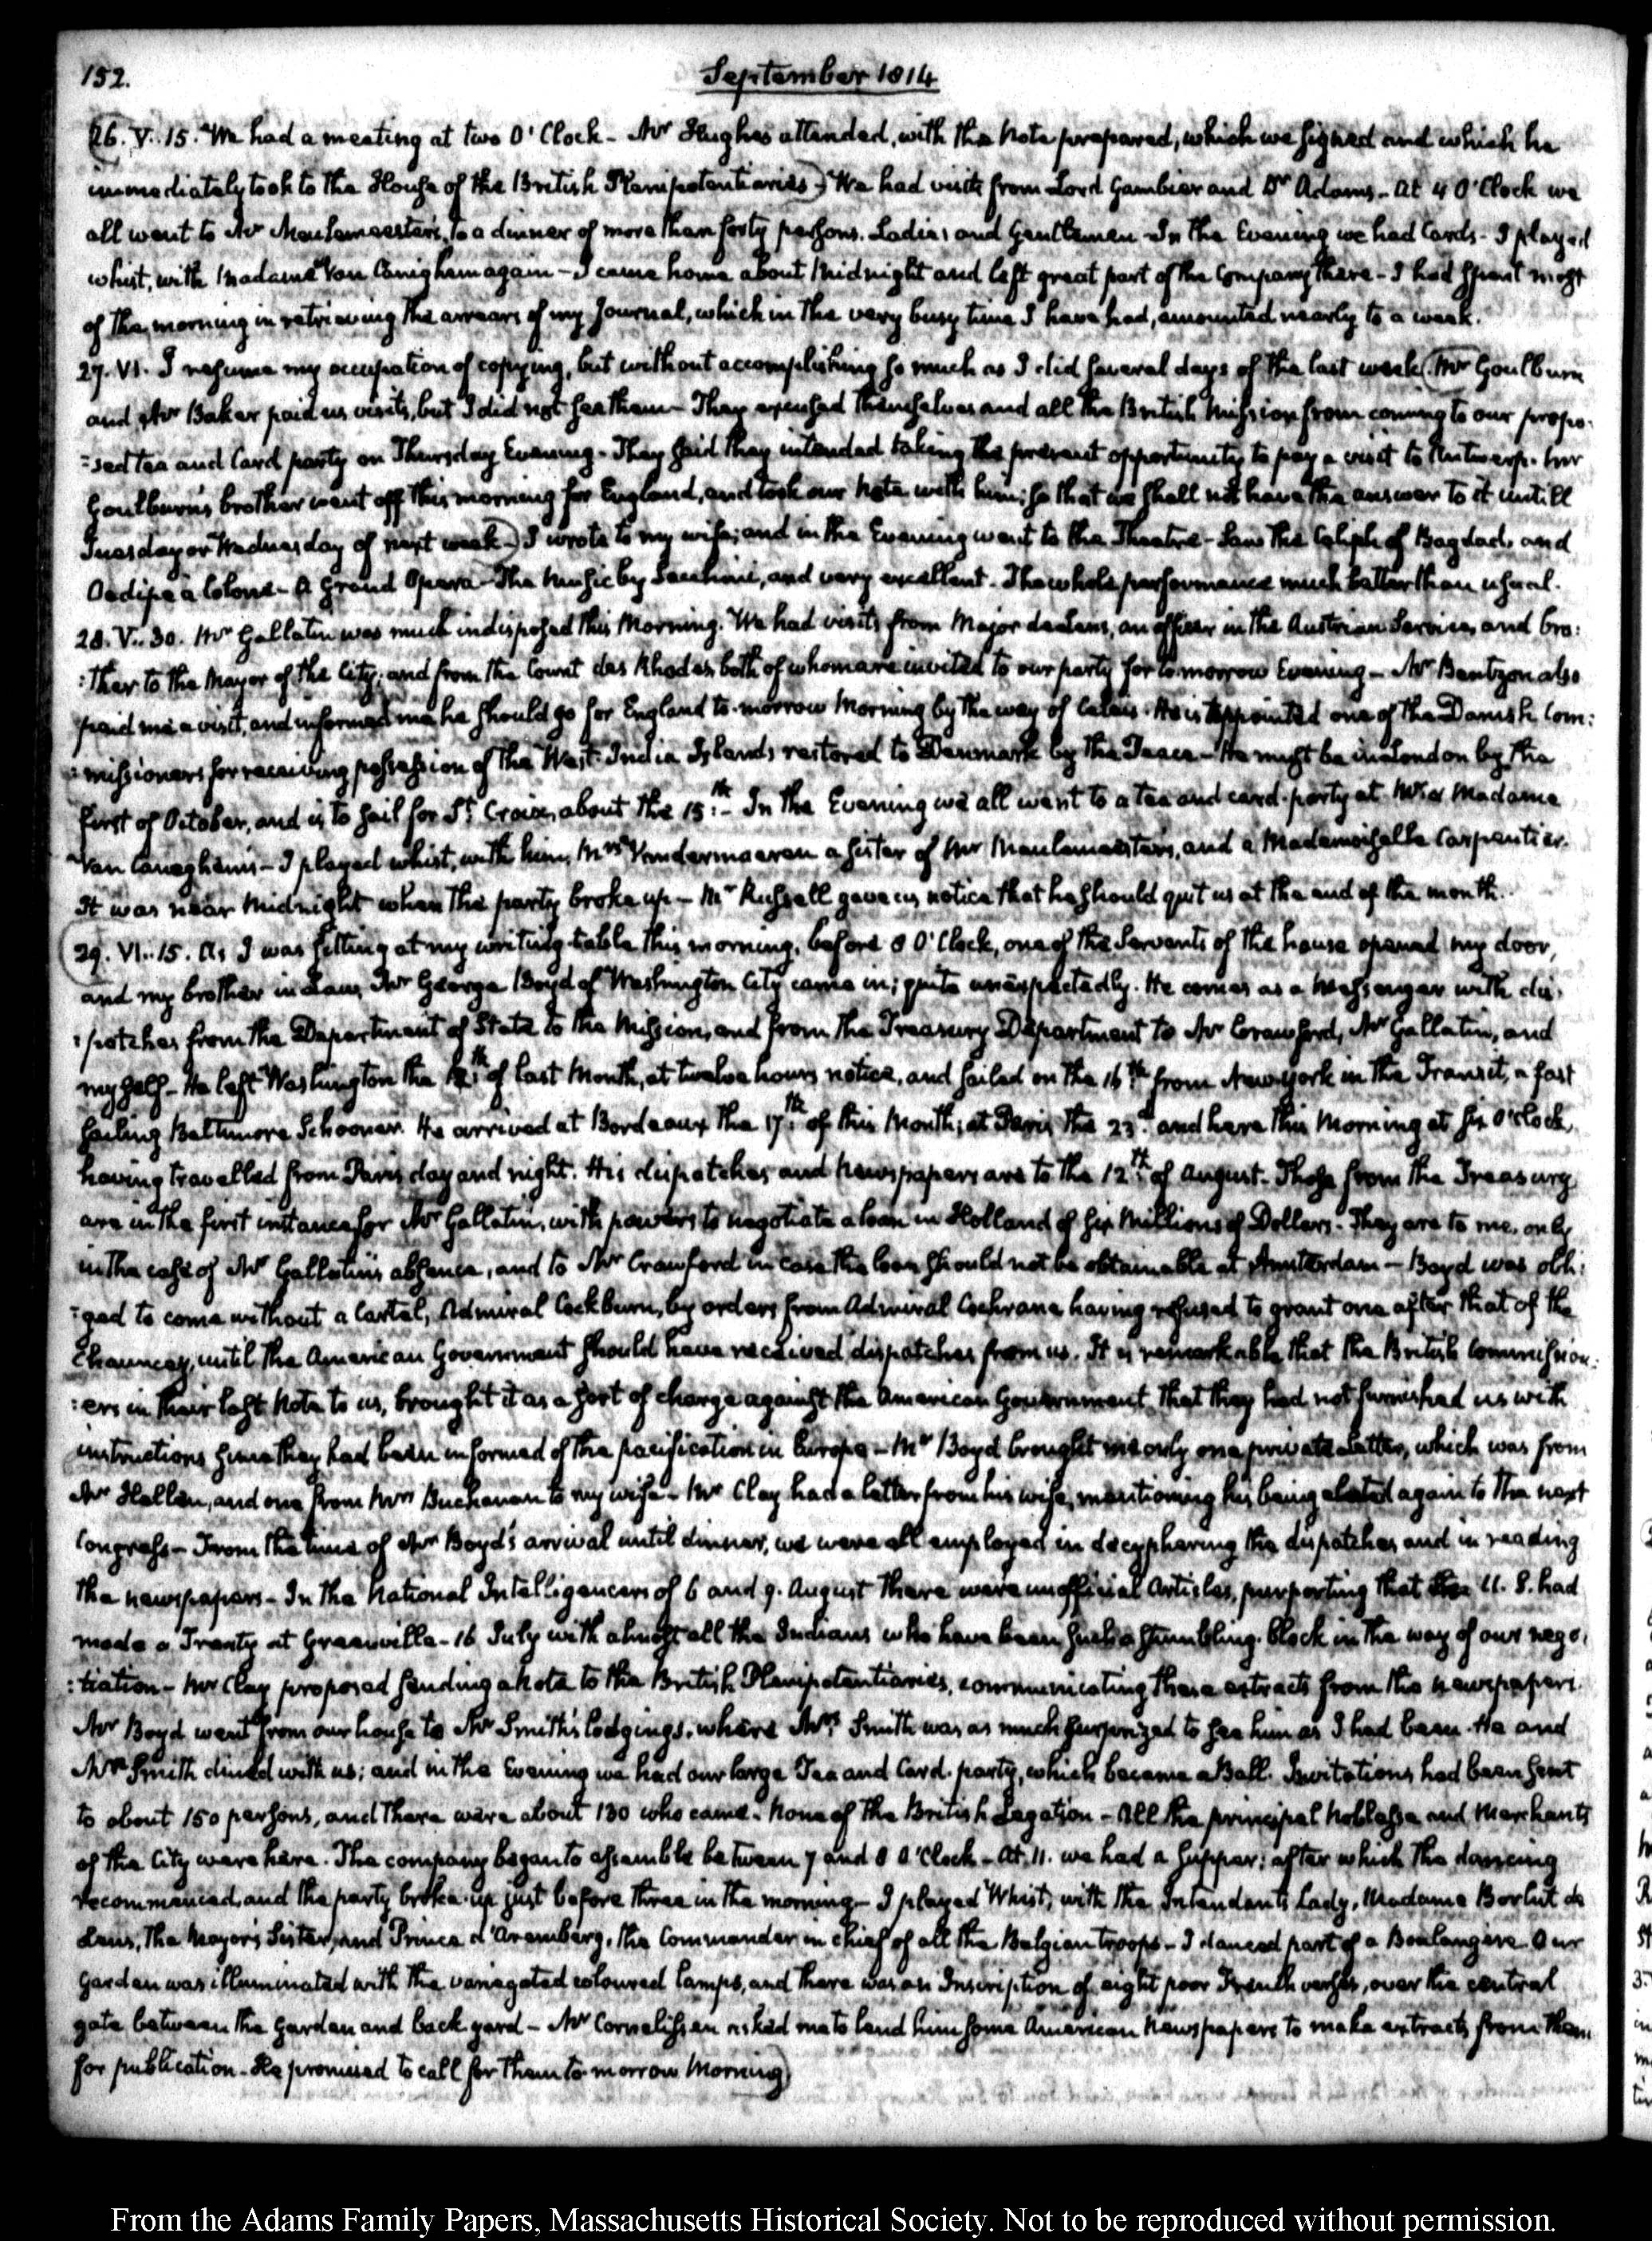 152.
September 1814
26. V. 15. We had a meeting at two O'Clock - Mr Hughes attended, with the Note prepared, which we signed and which he
immediately took to the House of the British Plenipotentiaries - We had visits from Lord Gambier and Dr Adams - At 4 O'Clock we
all went to Mr Meulemeester's, to a dinner of more than forty persons. Ladies and Gentlemen - In the Evening we had Cards - I played
whist, with Madame Van Canighem again - I came home about Midnight and left great part of the Company there - I had spent most
of the morning in retrieving the arrears of my Journal, which in the very busy time I have had, amounted nearly to a week.
27. VI. I resume my occupation of copying, but without accomplishing so much as I did several days of the last week. Mr Goulburn
and Mr Baker paid us visits, but I did not see them - They excused themselves and all the British Mission from coming to our propo-
:sed tea and Card party on Thursday Evening - They said they intended taking the present opportunity to pay a visit to Antwerp. Mr
Goulburn's brother went off this morning for England, and took our Note with him; so that we shall not have the answer to it untill
Tuesday or Wednesday of next week - I wrote to my wife; and in the Evening went to the Theatre - Saw the Caliph of Bagdad, and
Oedipe à Colone - A Grand Opera - The Music by Sacchini, and very excellent. The whole performance much better than usual.
28. V. 30. Mr Gallatin was much indisposed this Morning. We had visits from Major de Lens, an officer in the Austrian Service, and bro:
:ther to the Mayor of the City; and from the Count des Rhodes, both of whom are invited to our party for to-morrow Evening - Mr Bentzon also
paid me a visit, and informed me he should go for England to-morrow Morning by the way of Calais. He is appointed one of the Danish Com:
:missioners for receiving possession of the West-India Islands restored to Denmark by the Peace - He must be in London by the
first of October, and is to sail for St. Croix, about the 15th - In the Evening we all went to a tea and card-party at Mr & Madame
Van Caneghem's - I played whist, with him, Mrs Vandermaeren a sister of Mr Meulemeester's, and a Mademoiselle Carpentier.
It was near Midnight when the party broke up - Mr Russell gave us notice that he should quit us at the end of the month.
29. VI. 15. As I was sitting at my writing-table this morning, before 8 O'Clock, one of the Servants of the house opened my door,
and my brother in Law, Mr George Boyd of Washington City came in; quite unexpectedly. He comes as a Messenger with dis-
:patches from the Department of State to the Mission, and from the Treasury Department to Mr Crawford, Mr Gallatin, and
myself - He left Washington the 12th of last Month, at twelve hours notice, and sailed on the 16th from New-York in the Transit, a fast
sailing Baltimore Schooner. He arrived at Bordeaux the 17th of this Month; at Paris the 23d and here this Morning at six O'Clock,
having travelled from Paris day and night. His dispatches and newspapers are to the 12th of August - Those from the Treasury
are in the first instance for Mr Gallatin, with powers to negotiate a loan in Holland of six Millions of Dollars - They are to me, only
in the case of Mr Gallatin's absence, and to Mr Crawford in case the loan should not be obtainable at Amsterdam - Boyd was obli:
:ged to come without a Cartel, Admiral Cockburn, by orders from Admiral Cochrane having refused to grant one after that of the
Chauncey, until the American Government should have received dispatches from us. It is remarkable that the British Commission:
:ers in their last Note to us, brought it as a sort of charge against the American Government that they had not furnished us with
instructions since they had been informed of the pacification in Europe - Mr Boyd brought me only one private letter, which was from
Mr Hellen, and one from Mrs Buchanan to my wife - Mr Clay had a letter from his wife, mentioning his being elected again to the next
Congress - From the time of Mr Boyd's arrival until dinner, we were all employed in decyphering the dispatches and in reading
the newspapers - In the National Intelligencers of 6 and 9. August there were unofficial Articles, purporting that the U.S. had
made a Treaty at Greenville - 16 July with almost all the Indians who have been such a stumbling-block in the way of our nego:
:tiation - Mr Clay proposed sending a Note to the British Plenipotentiaries, communicating these extracts from the newspapers.
Mr Boyd went from our house to Mr Smith's lodgings, where Mrs Smith was as much surprized to see him as I had been. He and
Mrs Smith dined with us; and in the Evening we had our large Tea and Card-party, which became a Ball. Invitations had been sent
to about 150 persons, and there were about 130 who came. None of the British Legation - All the principal Noblesse and Merchants
of the City were here. The company began to assemble between 7 and 8 O'Clock - At 11. we had a supper; after which the dancing
recommenced, and the party broke up just before three in the morning - I played Whist, with the Intendant's Lady, Madame Borlut de
Lens, the Mayor's Sister, and Prince d'Aremberg, the Commander in chief of all the Belgian troops - I danced part of a Boulangère. Our
garden was illuminated with the variegated coloured lamps, and there was an Inscription of eight poor French verses, over the central
gate between the Garden and back yard - Mr Cornelissen asked me to lend him some American Newspapers to make extracts from them
for publication. He promised to call for them to-morrow Morning
From the Adams Family Papers, Massachusetts Historical Society. Not to be reproduced without permission.